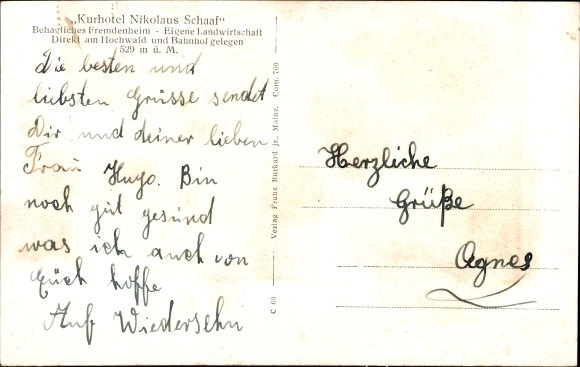 „Kurhotel Nikolaus Schaaf“
Behagliches Fremdenheim - Eigene Landwirtschaft
Direkt am Hochwald und Bahnhof gelegen
529 m ü. M.
Die besten und
liebsten Grüsse sendet
Dir und deiner lieben
Frau Hugo. Bin
noch gut gesund
was ich auch von
Euch hoffe
Auf Wiedersehn
Verlag Franz Burkard jr., Mainz. Com. 760
C 60
Herzliche
Grüße
Agnes